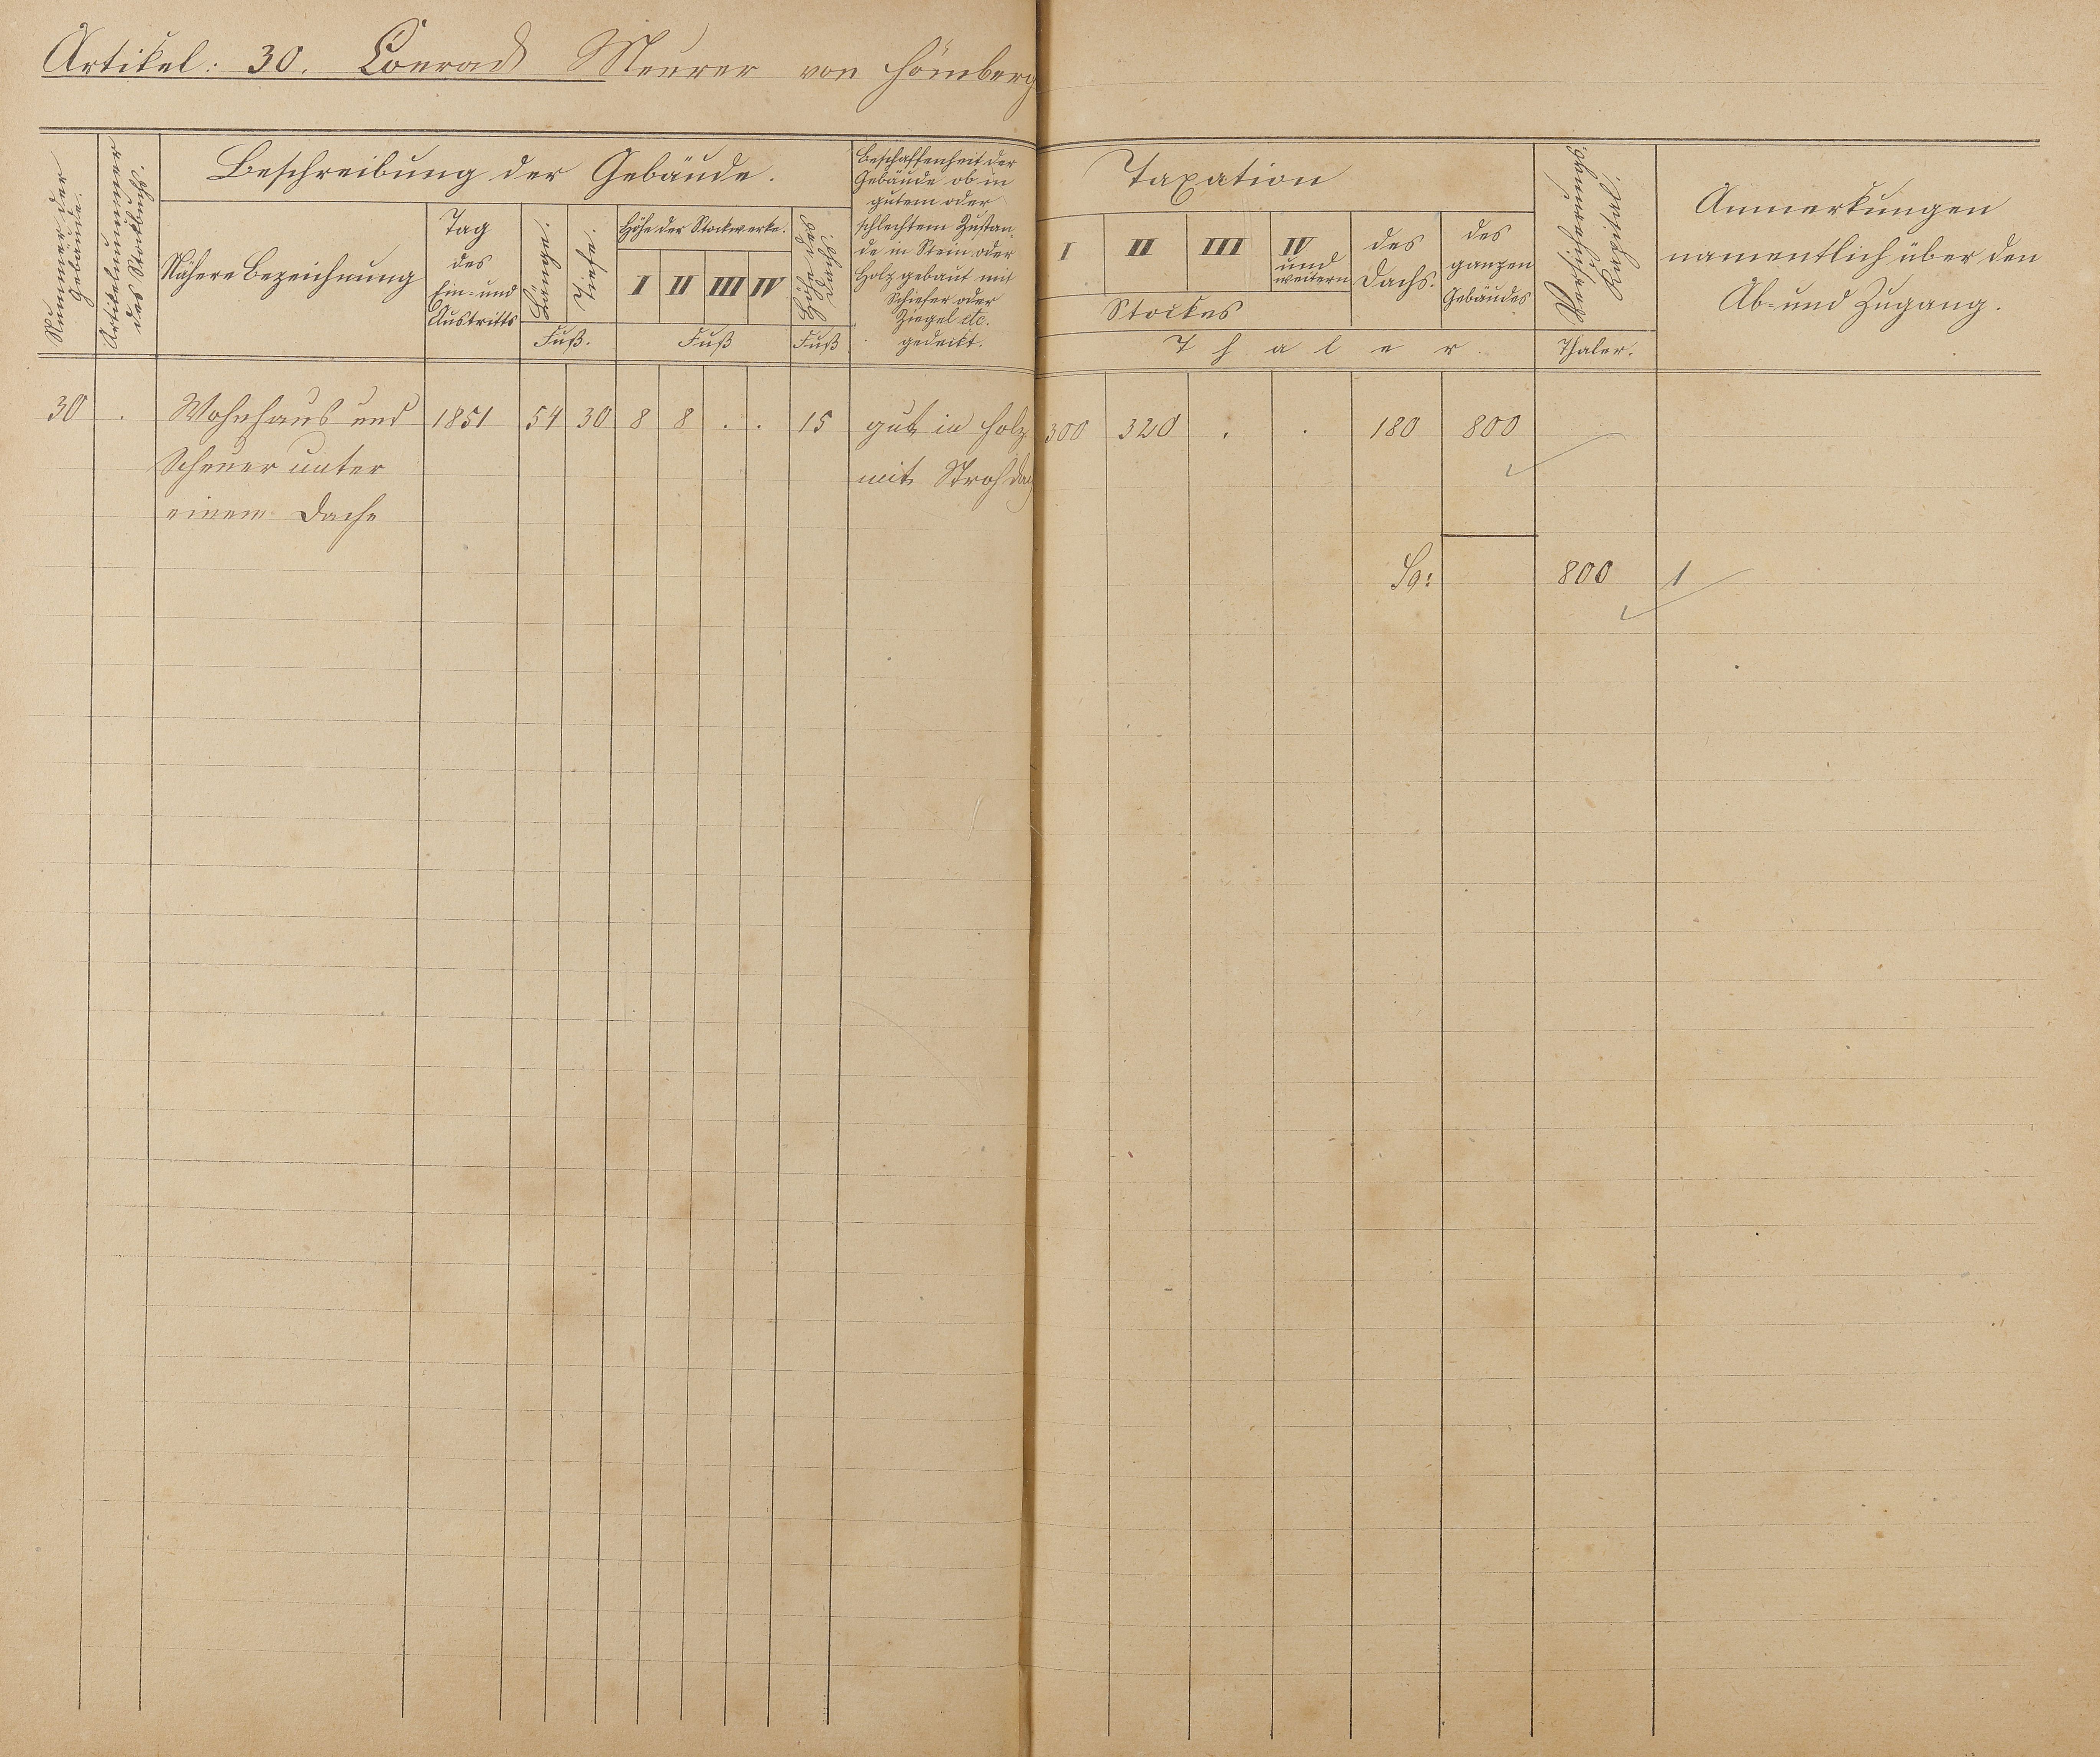 Artikel: 30. Conrad Meurer von Hömberg
Nummer der
Gebäude.
Artikelnummer
des Stockbuchs.
Beschreibung der Gebäude.
Nähere Bezeichnung
Tag
des
Ein- und
Austritts
Länge.
Tiefe.
Fuß.
Höhe der Stockwerke.
I II III IV
Fuß
Höhe des
Dachs.
Fuß
Beschaffenheit der
Gebäude ob in
gutem oder
schlechtem Zustan-
de in Stein oder
Holz gebaut mit
Schiefer oder
Ziegel etc.
gedeckt.
Taxation
I II III IV
und
weitern
Stockes
des
Dachs.
des
ganzen
Gebäudes
Thaler.
Kapital.
Thaler.
Anmerkungen
namentlich über den
Ab- und Zugang.
30 . Wohnhaus und 1851 54 30 8 8 . . 15 gut in Holz 300 320 . . 180 800
Scheuer unter mit Strohdach
einem Dache
Sa: 800 1